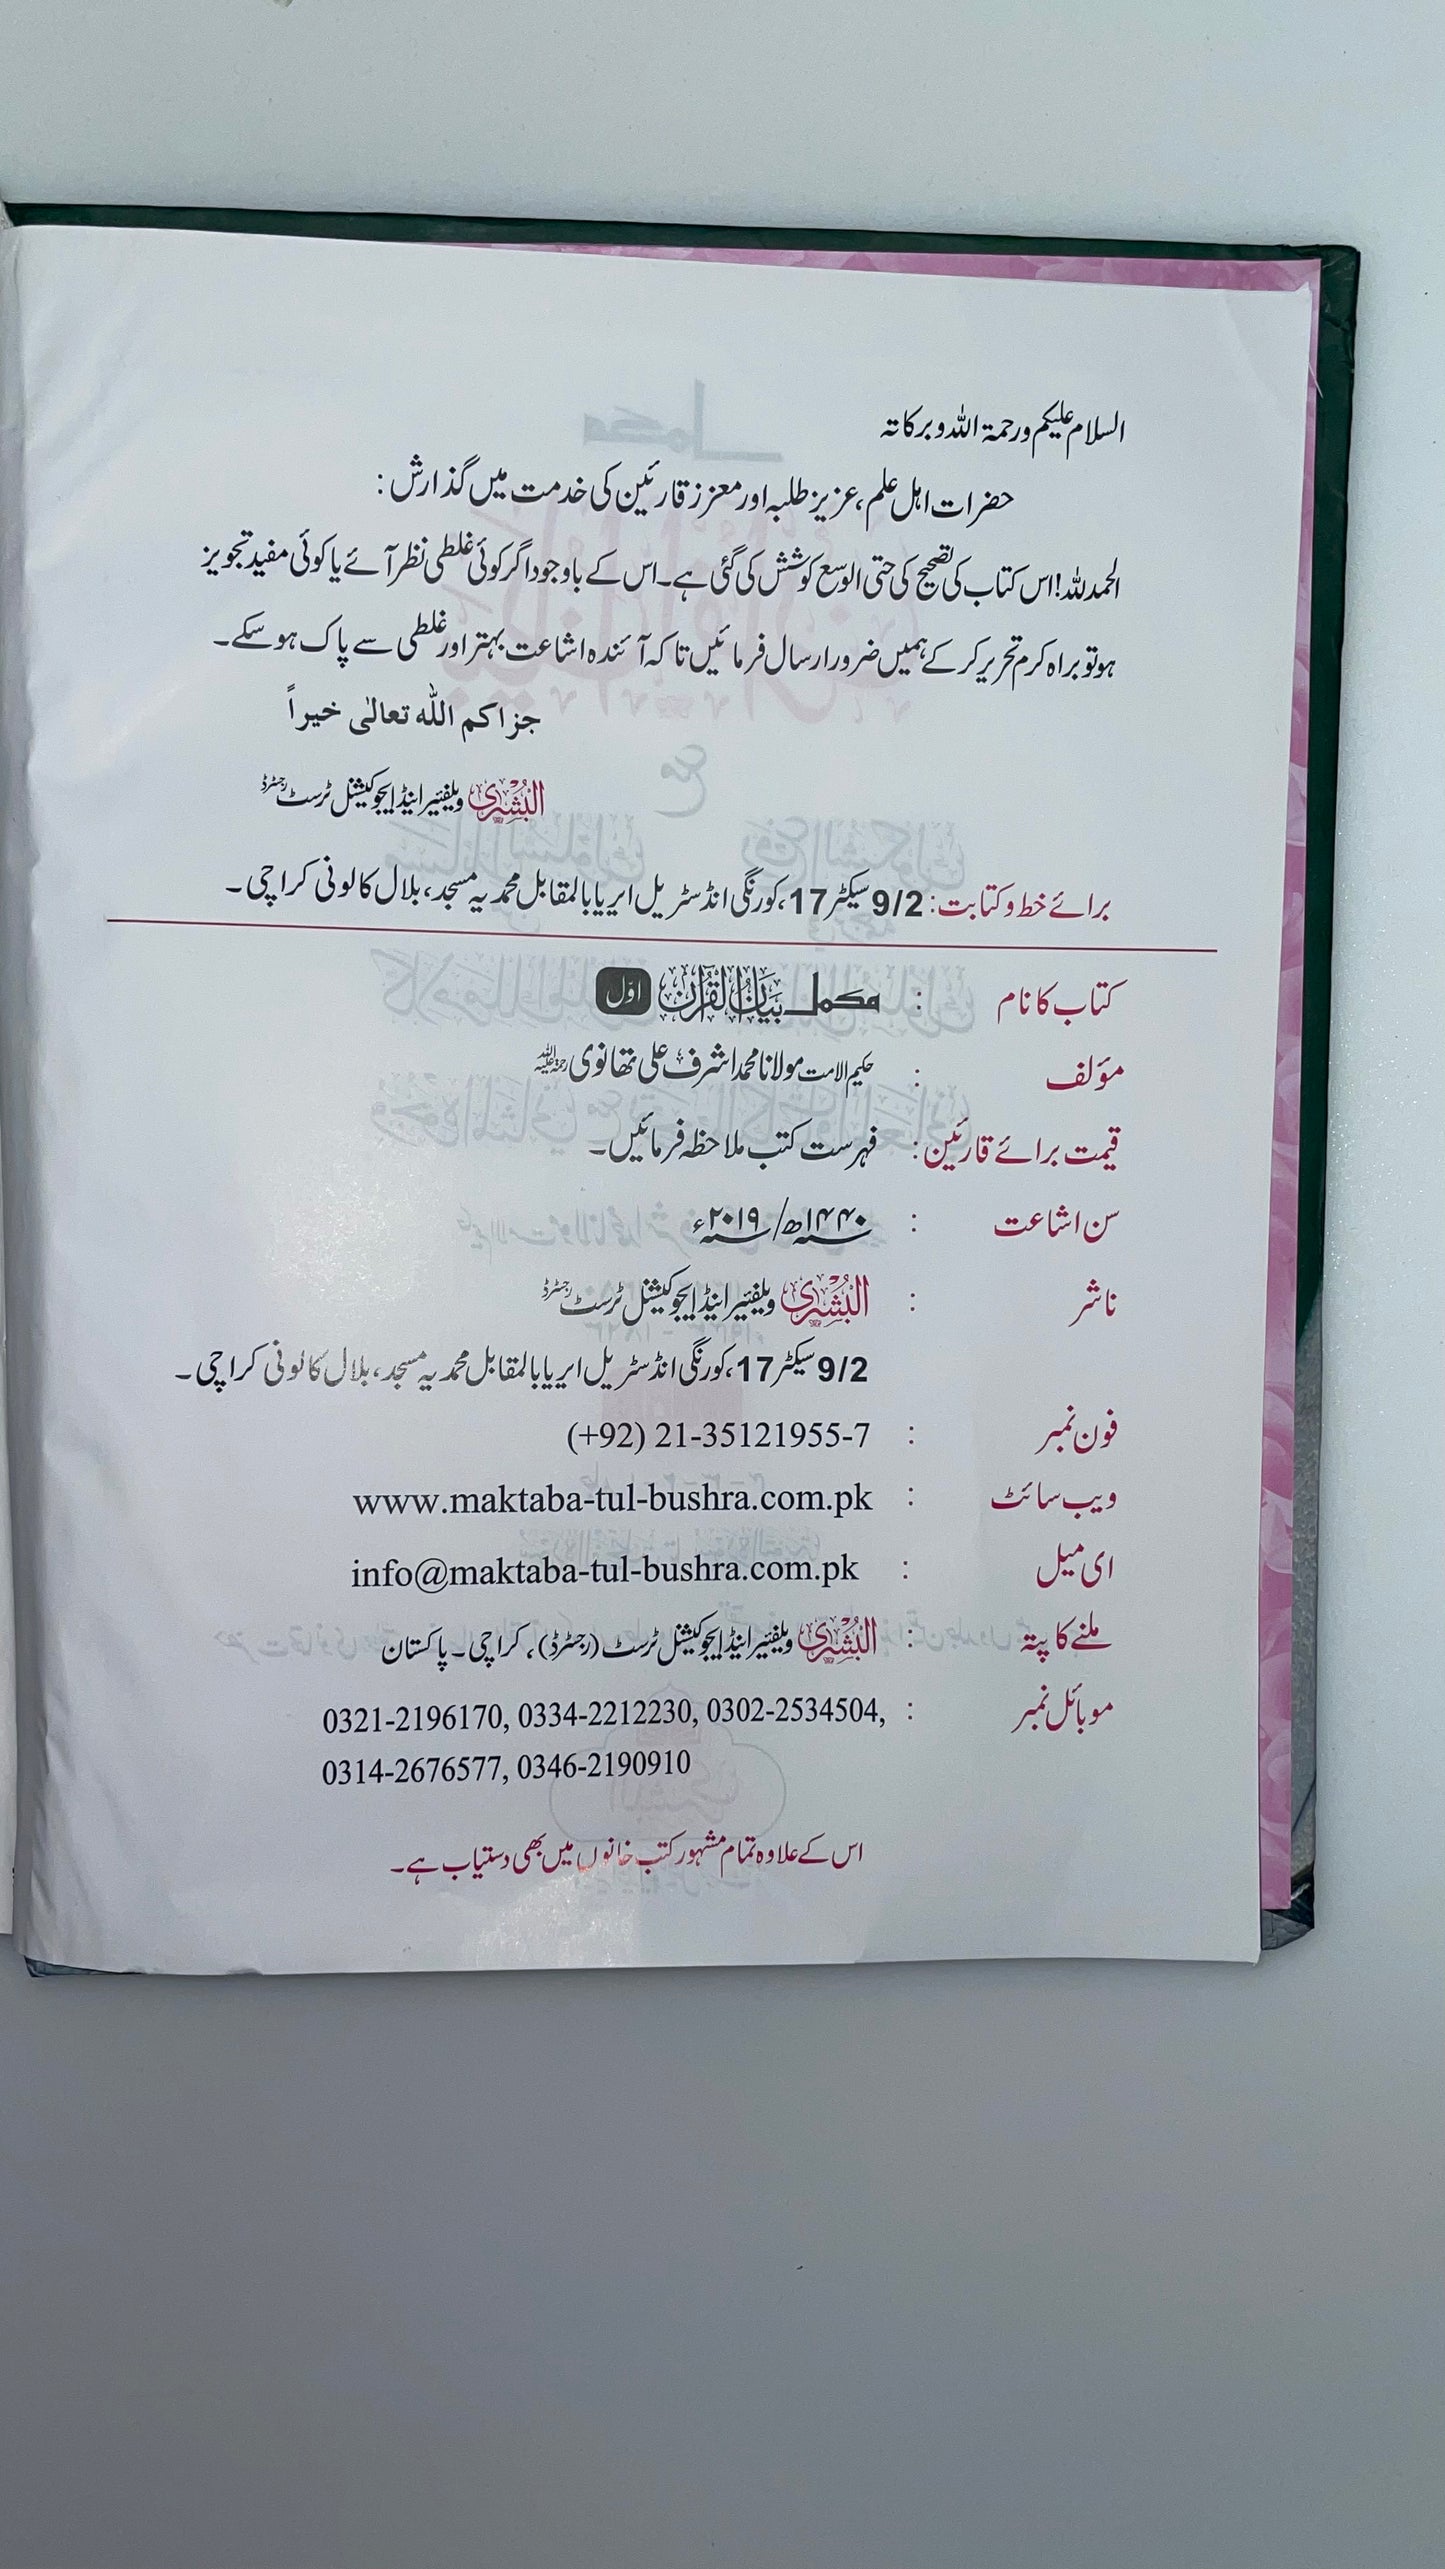 السلام علیکم ورحمۃ اللہ وبرکاتہ
حضرات اہل علم، عزیز طلبہ اور معزز قارئین کی خدمت میں گذارش:
الحمد للہ! اس کتاب کی تصحیح کی حتی الوسع کوشش کی گئی ہے۔ اس کے باوجود اگر کوئی غلطی نظر آئے یا کوئی مفید تجویز
ہو تو براہ کرم تحریر کر کے ہمیں ضرور ارسال فرمائیں تاکہ آئندہ اشاعت بہتر اور غلطی سے پاک ہو سکے۔
جزاكم الله تعالٰى خيراً
البُشریٰ ویلفئیر اینڈ ایجوکیشنل ٹرسٹ رجسٹرڈ
برائے خط و کتابت: 9/2 سیکٹر 17، کورنگی انڈسٹریل ایریا بالمقابل محمدیہ مسجد، بلال کالونی کراچی۔
کتاب کا نام : مکمل بیان القرآن اوّل
مؤلف : حکیم الامت مولانا محمد اشرف علی تھانوی رحمۃ اللہ علیہ
قیمت برائے قارئین: فہرست کتب ملاحظہ فرمائیں۔
سن اشاعت : ۱۴۴۰ھ/ ۲۰۱۹ء
ناشر : البُشریٰ ویلفئیر اینڈ ایجوکیشنل ٹرسٹ رجسٹرڈ
9/2 سیکٹر 17، کورنگی انڈسٹریل ایریا بالمقابل محمدیہ مسجد، بلال کالونی کراچی۔
فون نمبر : (+92) 21-35121955-7
ویب سائٹ : www.maktaba-tul-bushra.com.pk
ای میل : info@maktaba-tul-bushra.com.pk
ملنے کا پتہ : البُشریٰ ویلفئیر اینڈ ایجوکیشنل ٹرسٹ (رجسٹرڈ)، کراچی۔ پاکستان
موبائل نمبر : 0321-2196170, 0334-2212230, 0302-2534504,
0314-2676577, 0346-2190910
اس کے علاوہ تمام مشہور کتب خانوں میں بھی دستیاب ہے۔